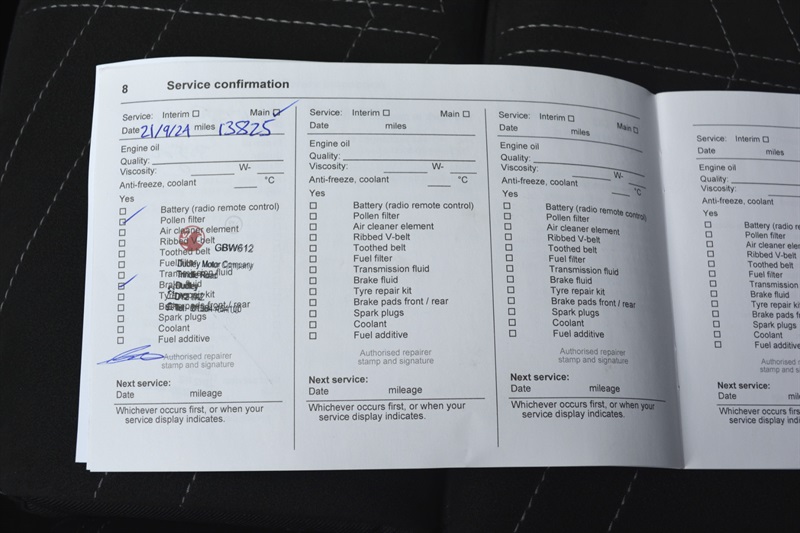 8 Service confirmation
Service: Interim ☐ Main ☑
Date 21/9/24 miles 13825
Engine oil
Quality:
Viscosity: W-
Anti-freeze, coolant °C
Yes
☐ Battery (radio remote control)
☑ Pollen filter
☐ Air cleaner element
☐ Ribbed V-belt
☐ Toothed belt
GBW612
☐ Fuel filter
Dudley Motor Company
☐ Transmission fluid
Trindle Road
☑ Brake fluid
Dudley
☐ Tyre repair kit
☐ Brake pads front / rear
☐ Spark plugs
☐ Coolant
☐ Fuel additive
Authorised repairer
stamp and signature
Next service:
Date mileage
Whichever occurs first, or when your
service display indicates.
Service: Interim ☐ Main ☐
Date miles
Engine oil
Quality:
Viscosity: W-
Anti-freeze, coolant °C
Yes
☐ Battery (radio remote control)
☐ Pollen filter
☐ Air cleaner element
☐ Ribbed V-belt
☐ Toothed belt
☐ Fuel filter
☐ Transmission fluid
☐ Brake fluid
☐ Tyre repair kit
☐ Brake pads front / rear
☐ Spark plugs
☐ Coolant
☐ Fuel additive
Authorised repairer
stamp and signature
Next service:
Date mileage
Whichever occurs first, or when your
service display indicates.
Service: Interim ☐ Main ☐
Date miles
Engine oil
Quality:
Viscosity: W-
Anti-freeze, coolant °C
Yes
☐ Battery (radio remote control)
☐ Pollen filter
☐ Air cleaner element
☐ Ribbed V-belt
☐ Toothed belt
☐ Fuel filter
☐ Transmission fluid
☐ Brake fluid
☐ Tyre repair kit
☐ Brake pads front / rear
☐ Spark plugs
☐ Coolant
☐ Fuel additive
Authorised repairer
stamp and signature
Next service:
Date mileage
Whichever occurs first, or when your
service display indicates.
Service: Interim ☐
Date miles
Engine oil
Quality:
Viscosity:
Anti-freeze, coolant
Yes
☐ Battery (radio
☐ Pollen filter
☐ Air cleaner
☐ Ribbed V-belt
☐ Toothed belt
☐ Fuel filter
☐ Transmission
☐ Brake fluid
☐ Tyre repair kit
☐ Brake pads
☐ Spark plugs
☐ Coolant
☐ Fuel additive
stamp and
Next service:
Date
Whichever occurs first, or
service display indicates.